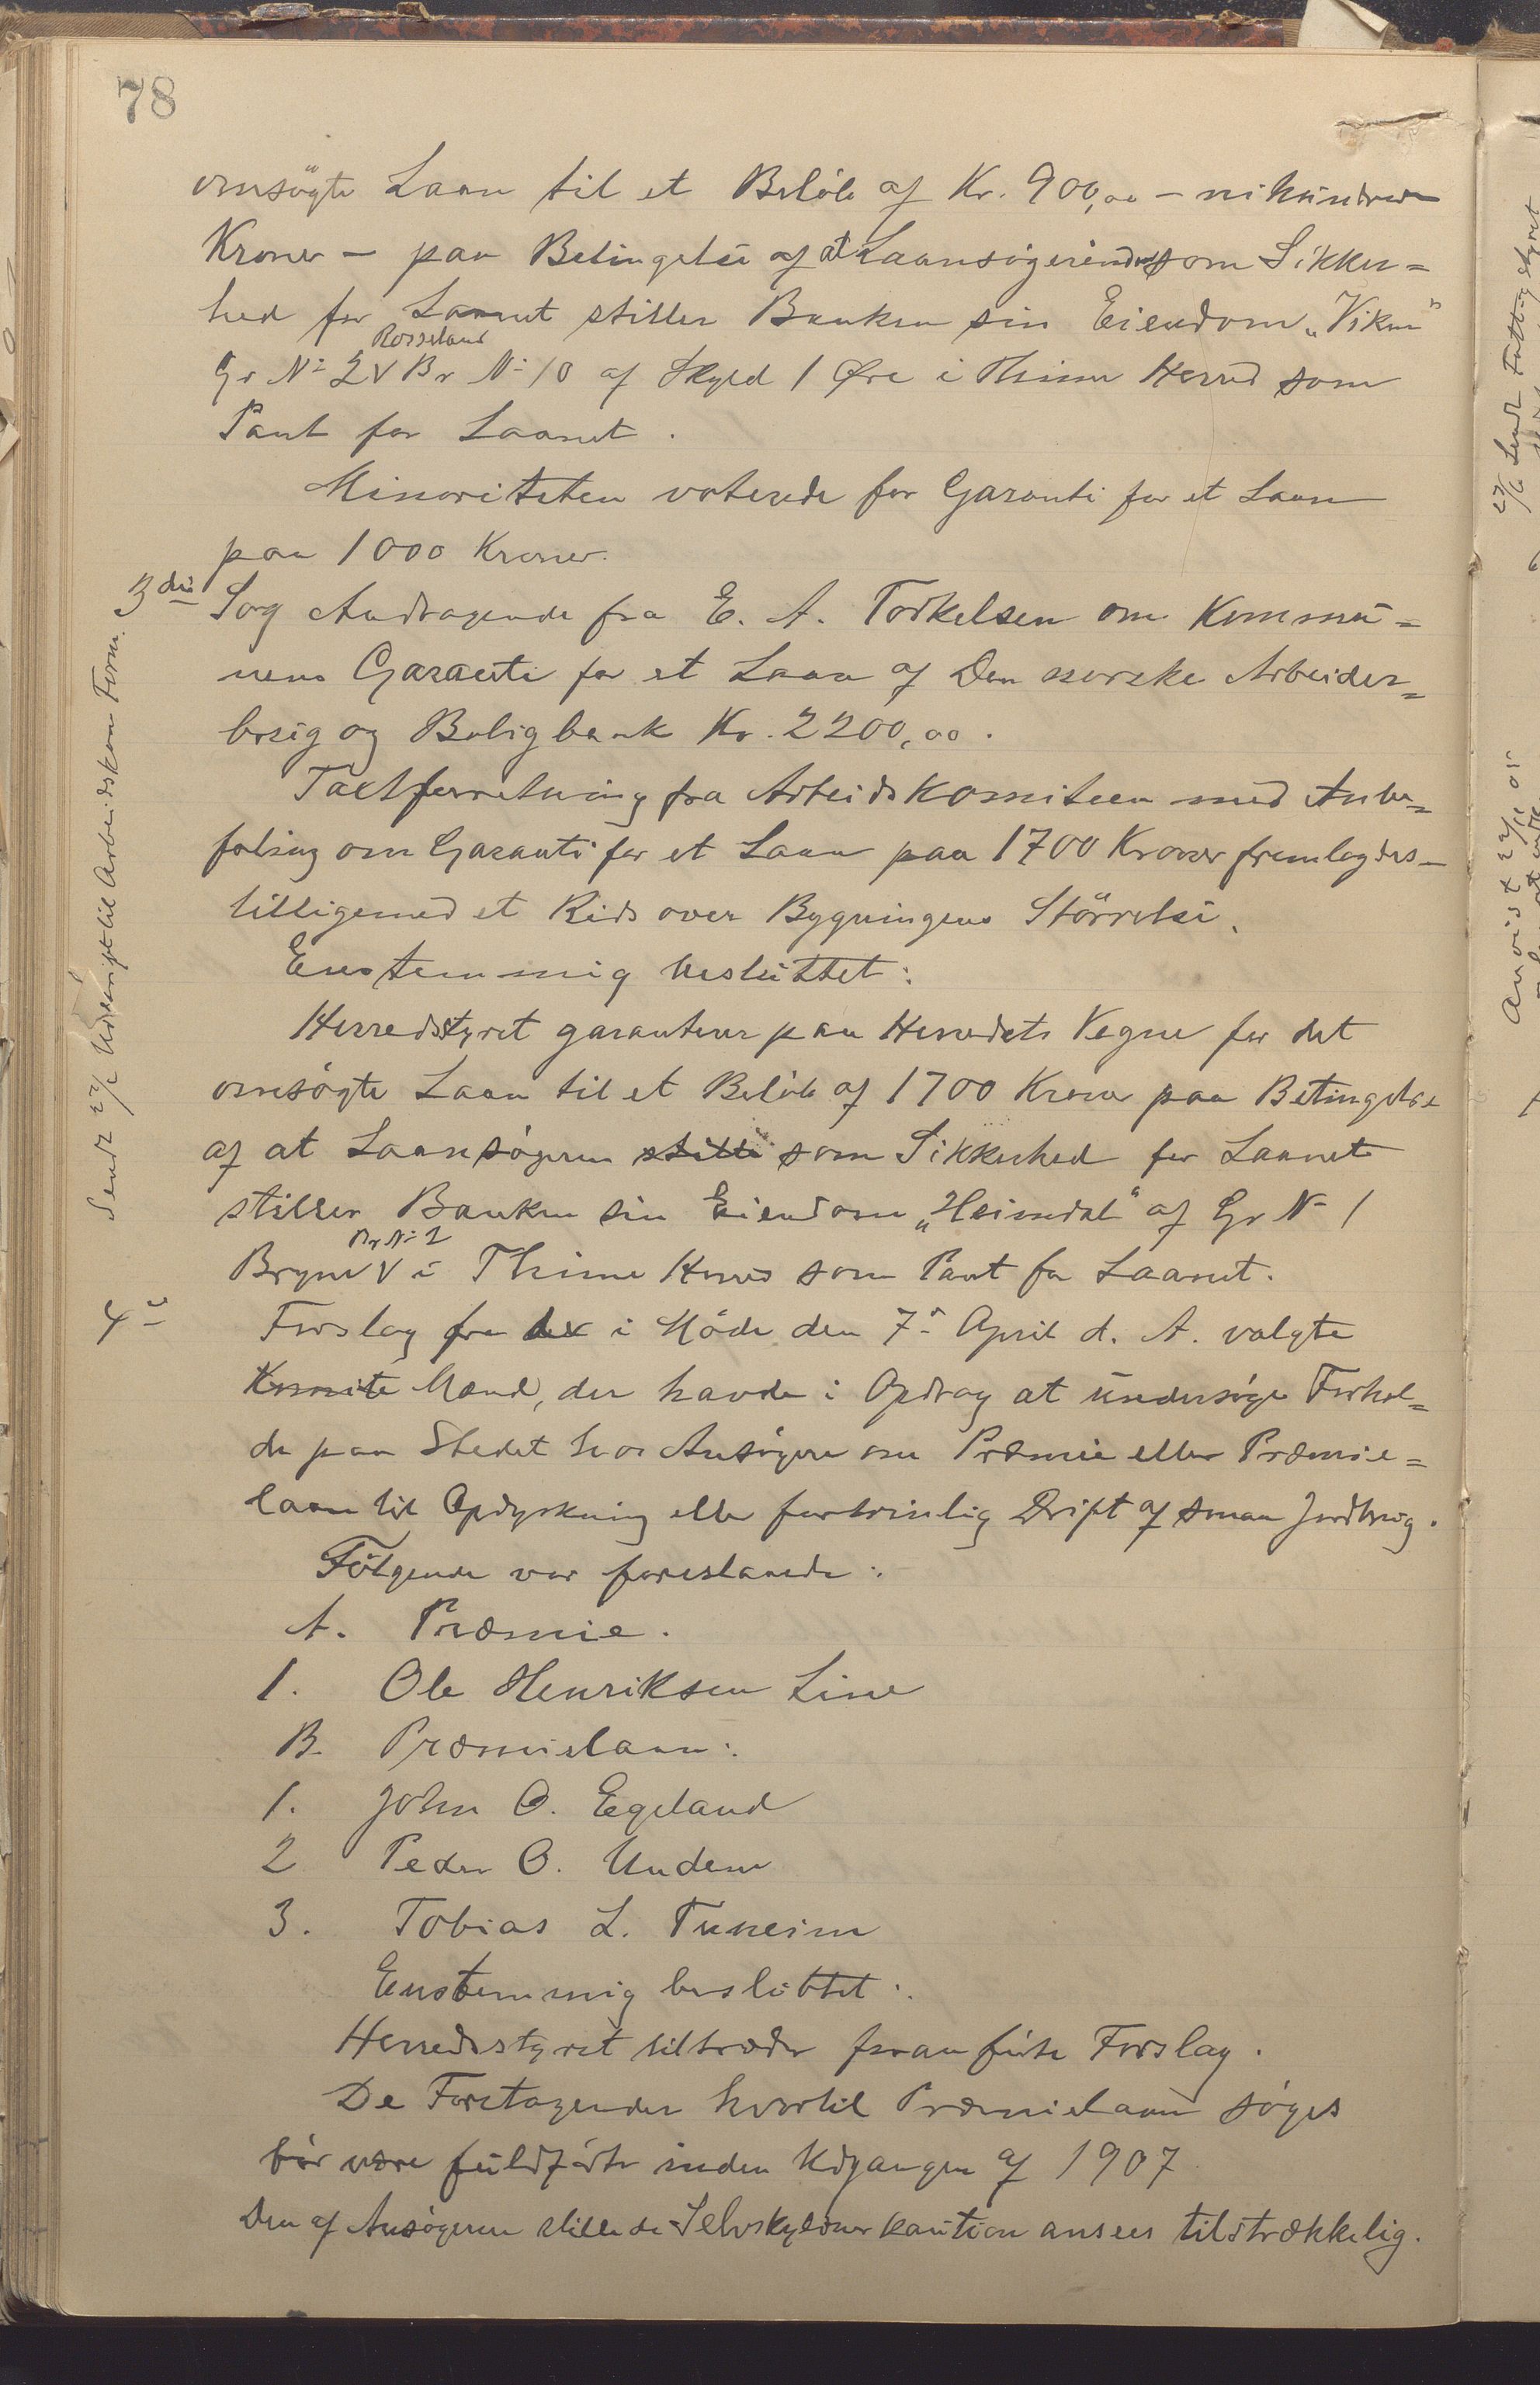 78
omsögte Laan til et Beløb af Kr. 900,00 – nihundrede
Kroner – paa Betingelse af at Laansøgerinden som Sikker=
hed for Laanet stiller Banken sin Eiendom „Viken"
Rosseland
Gr No 2 V Br No 10 af Skyld 1 Øre i Thime Herred som
Pant for Laanet.
Minoriteten voterede for Garanti for et Laan
paa 1000 Kroner.
3die Sag Andragende fra E. A. Torkelsen om Kommu=
nens Garanti for et Laan af Den norske Arbeider=
brug og Boligbank Kr. 2200,00.
Taxtforretning fra Arbeidskomiteen med Anbe=
faling om Garanti for et Laan paa 1700 Kroner fremlagdes
tilligemed et Rids over Bygningens Störrelse.
Enstemmig besluttet:
Herredsstyret garanterer paa Herredets Vegne for det
omsögte Laan til et Beløb af 1700 Kroner paa Betingelse
af at Laansøgeren stille som Sikkerhed for Laanet
stiller Banken sin Eiendom „Heimdal" af Gr No 1
Br No 2
Bryne V i Thime Herred som Pant for Laanet.
4de Forslag fra de i Möde den 7de April d. A. valgte
Komite Mænd, der havde i Opdrag at undersøge Forhol=
de paa Stedet hos Ansøgere om Præmie eller Præmie=
laan til Opdyrkning eller fortrinlig Drift af smaa Jordbrug.
Fölgende var foreslaaede:
A. Præmie.
1. Ole Henriksen Line
B. Præmielaan:
1. John O. Egeland
2 Peder O. Undem
3. Tobias L. Tuneim
Enstemmig besluttet:
Herredsstyret tiltræder foranførte Forslag.
De Foretagender hvortil Præmielaan søges
bör være fuldförte inden Udgangen af 1907
Den af Ansøgeren stillede Selvskyldnerkaution ansees tilstrækkelig.
Sendt 27/6 Udskrift til Arbeidskom Form.